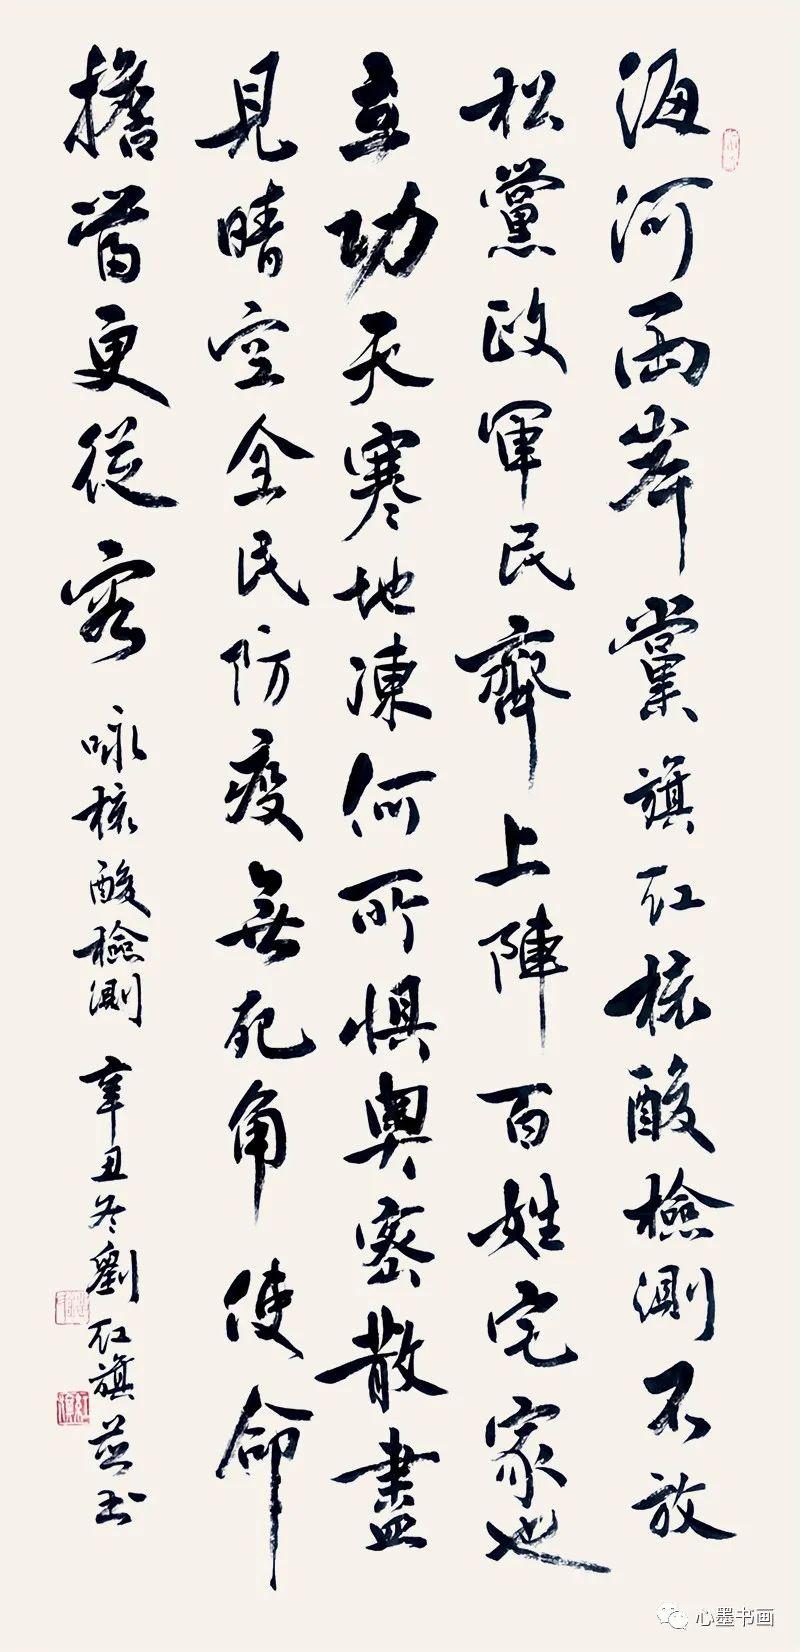 海河两岸黨旗紅核酸檢測不放
松黨政軍民齊上陣百姓宅家也
立功天寒地凍何所惧奥密散盡
見晴空全民防疫無死角使命
擔當更從容
咏核酸檢測 辛丑冬劉紅旗並书
心墨书画